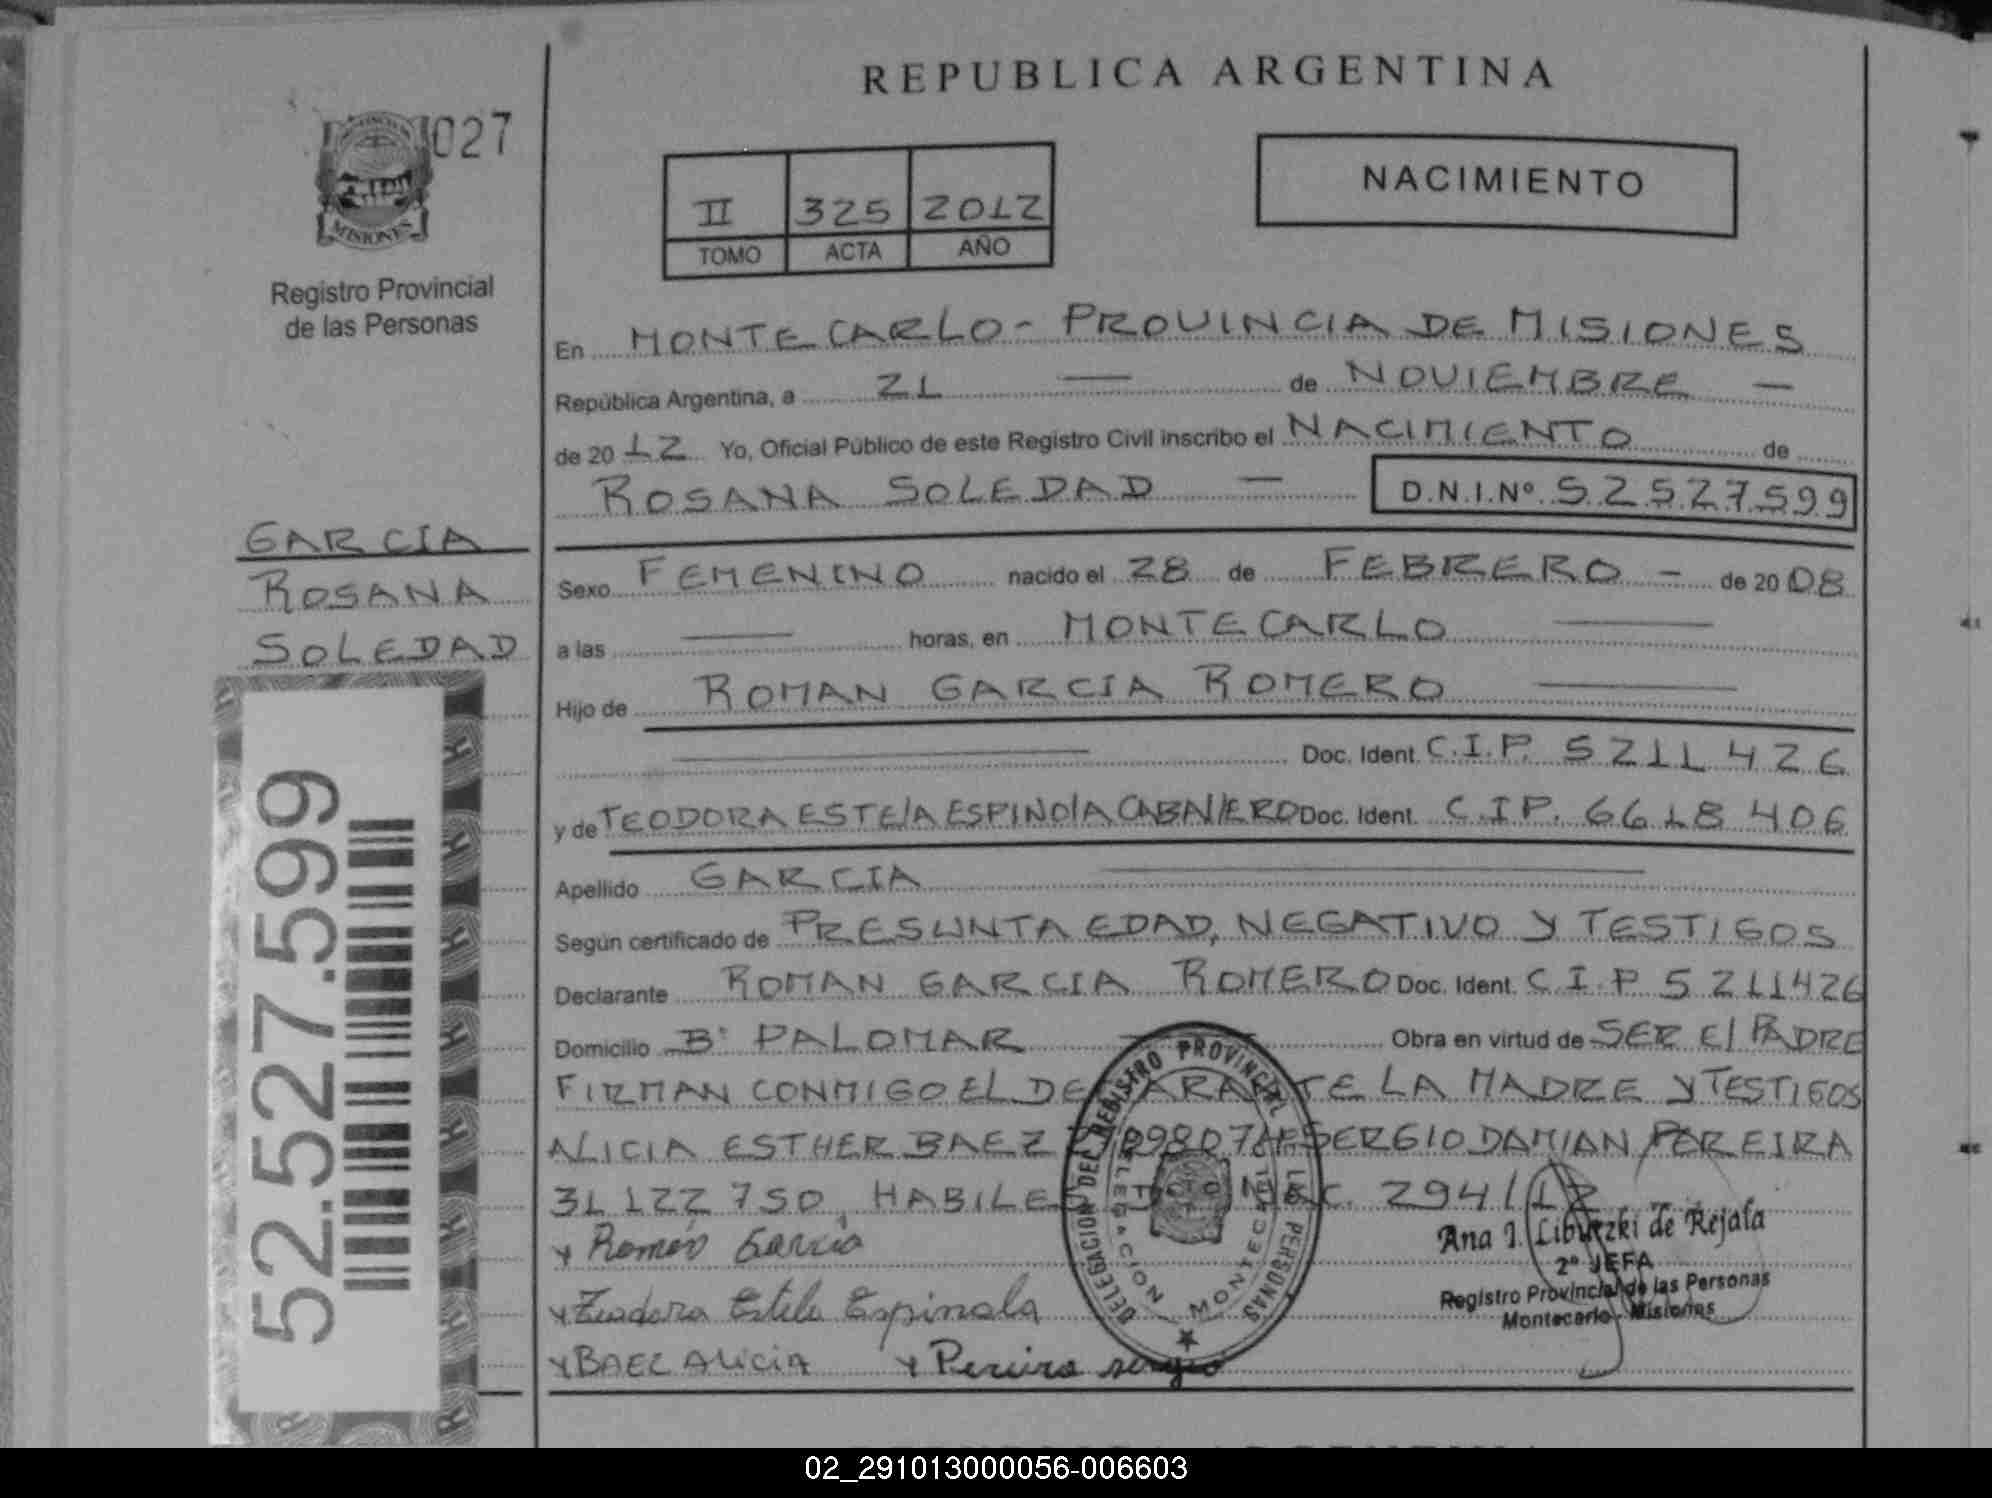 REPUBLICA ARGENTINA
027
MISIONES
Registro Provincial
de las Personas
II 325 2012
TOMO ACTA AÑO
NACIMIENTO
En MONTECARLO - PROVINCIA DE MISIONES
República Argentina, a 21 — de NOVIEMBRE —
de 2012 Yo, Oficial Público de este Registro Civil inscribo el NACIMIENTO de
ROSANA SOLEDAD — D.N.I.Nº 52527599
GARCIA
ROSANA
SOLEDAD
52.527.599
Sexo FEMENINO nacido el 28 de FEBRERO - de 2008
a las — horas, en MONTECARLO —
Hijo de ROMAN GARCIA ROMERO —
— Doc. Ident. C.I.P. 5211426
y de TEODORA ESTElA ESPINOlA CABAllERO Doc. Ident. C.I.P. 6618406
Apellido GARCIA —
Según certificado de PRESUNTA EDAD, NEGATIVO Y TESTIGOS
Declarante ROMAN GARCIA ROMERO Doc. Ident. C.I.P 5211426
Domicilio Bº PALOMAR — Obra en virtud de SER El PADRE
FIRMAN CONMIGO EL DECLARANTE LA MADRE Y TESTIGOS
ALICIA ESTHER BAEZ SERGIO DAMIAN PEREIRA
31122750, HABILES 294/12
x Román García
x Teodora Estela Espinola
x BAEZ ALICIA x Pereira sergio
DELEGACION DEL REGISTRO PROVINCIAL DE LAS PERSONAS
DELEGACION MONTECARLO
Ana I. de Rejala
2º JEFA
Registro Provincial de las Personas
Montecarlo - Misiones
02_291013000056-006603